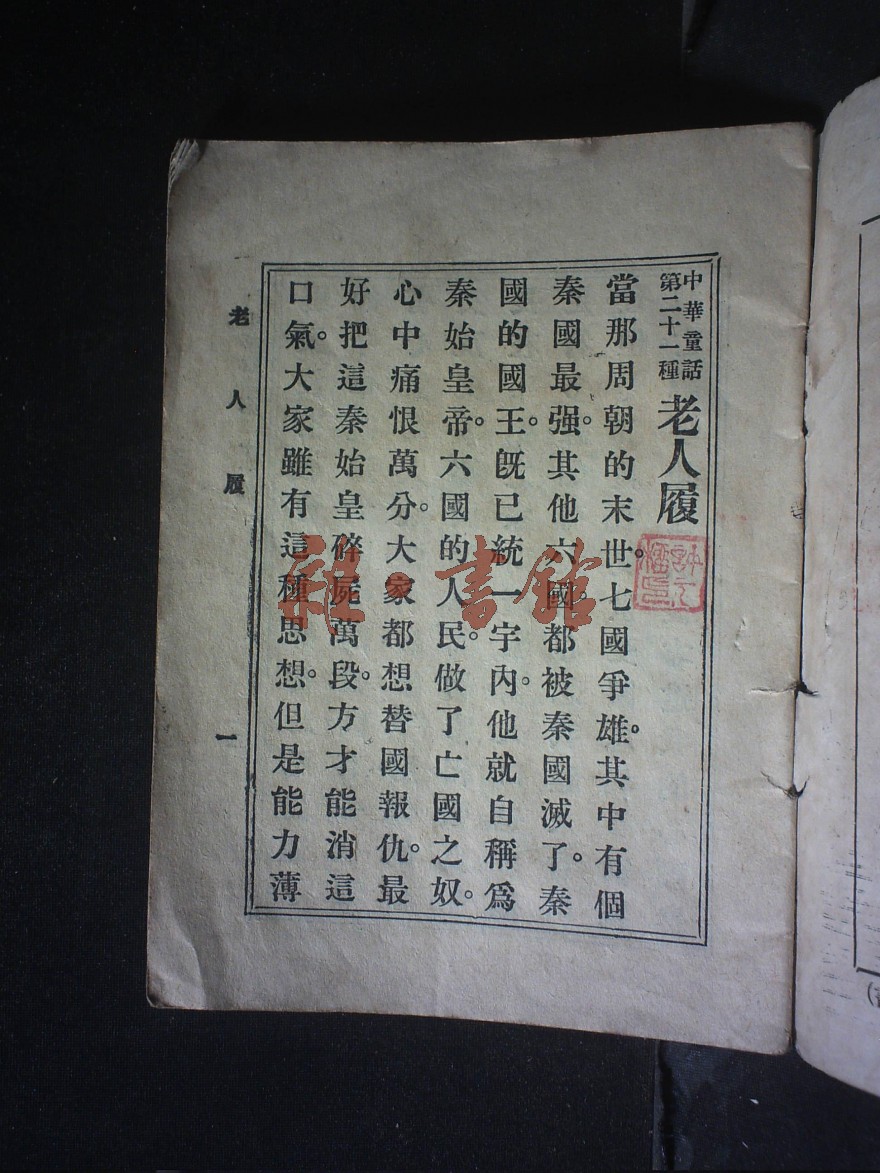 中華童話
第二十一種
老人履
當那周朝的末世。七國爭雄。其中有個
秦國最强。其他六國。都被秦國滅了。秦
國的國王。旣已統一宇內。他就自稱爲
秦始皇帝。六國的人民。做了亡國之奴。
心中痛恨萬分。大家都想替國報仇。最
好把這秦始皇碎屍萬段。方才能消這
口氣。大家雖有這種思想。但是能力薄
老人履
一
雜·書館